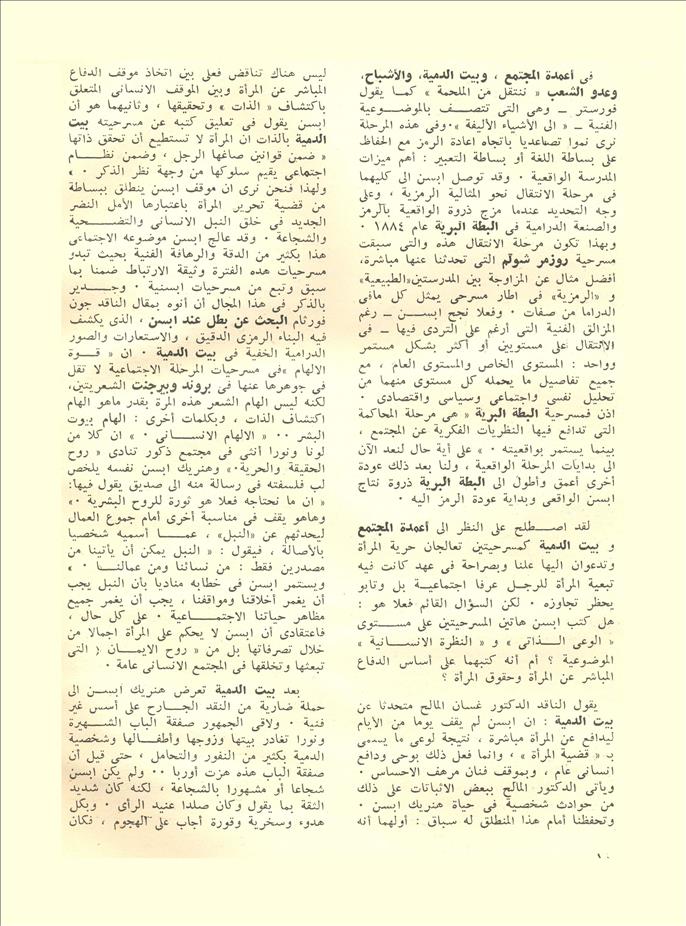 في أعمدة المجتمع ، وبيت الدمية، والأشباح،
وعدو الشعب « ننتقل من الملحمة » كمـا يقول
فورستر ــ وهي التي تتصـــف بالموضـــوعية
الفنية ــ « الى الأشياء الأليفة »٠وفي هذه المرحلة
نرى نموا تصاعديا باتجاه اعادة الرمز مع الحفاظ
على بساطة اللغة أو بساطة التعبير : أهم ميزات
المدرسة الواقعية ٠ وقد توصل ابسن الى كليهما
في مرحلة الانتقال نحو المثالية الرمزية ، وعلى
وجه التحديد عندما مزج ذروة الواقعية بالرمز
والصنعة الدرامية في البطة البرية عام ١٨٨٤ ٠
وبهذا تكون مرحلة الانتقال هذه والتي سبقت
مسرحية روزمر شولم التي تحدثنا عنها مباشرة،
أفضل مثال عن المزاوجة بين المدرستين«الطبيعية»
و «الرمزية» في اطار مسرحي يمثل كل مافي
الدراما من صفات ٠ وفعلا نجح ابســـن ــ رغم
المزالق الفنية التي أرغم على التردي فيها ــ في
الانتقال على مستويين أو أكثر بشكل مستمر
وواحد : المستوى الخاص والمستوى العام ، مع
جميع تفاصيل ما يحمله كل مستوى منهما من
تحليل نفسي واجتماعي وسياسي واقتصادي ٠
اذن فمسرحية البطة البرية « هي مرحلة المحاكمة
التي تدافع فيها النظريات الفكرية عن المجتمع ،
بينما يستمر بواقعيته ٠ » على أية حال لنعد الآن
الى بدايات المرحلة الواقعية ، ولنا بعد ذلك عودة
أخرى أعمق وأطول الى البطة البرية ذروة نتاج
ابسن الواقعي وبداية عودة الرمز اليه ٠
لقد اصـــطلح على النظر الى أعمدة المجتمع
و بيت الدمية كمسرحيتين تعالجان حرية المرأة
وتدعوان اليها علنا وبصراحة في عهد كانت فيه
تبعية المرأة للرجـــل عرفا اجتماعيـــة بل وتابو
يحظر تجاوزه ٠ لكن السؤال القائم فعلا هو :
هل كتب ابسن هاتين المسرحيتين على مســـتوى
« الوعي الـــذاتي » و « النظرة الانســـانية »
الموضوعية ؟ أم أنه كتبهما على أساس الدفاع
المباشر عن المرأة وحقوق المرأة ؟
يقول الناقد الدكتور غسان المالح متحدثا عن
بيت الدمية : ان ابسن لم يقف يوما من الأيام
ليدافع عن المرأة مباشرة ، نتيجة لوعي ما يسمى
بـ « قضية المرأة » ، وانما فعل ذلك بوحي ودافع
انساني عام ، وبموقف فنان مرهف الاحساس ٠
ويأتي الدكتور المالح ببعض الاثباتات على ذلك
من حوادث شخصية في حياة هنريك ابسن ٠
وتحفظنا أمام هذا المنطلق له سباق : أولهما أنه
ليس هناك تناقض فعلي بين اتخاذ موقف الدفاع
المباشر عن المرأة وبين الموقف الانساني المتعلق
باكتشاف « الذات » وتحقيقها ، وثانيهما هو أن
ابسن يقول في تعليق كتبه عن مسرحيته بيت
الدمية بالذات ان المرأة لا تستطيع أن تحقق ذاتها
« ضمن قوانين صاغها الرجل ، وضمن نظـــام
اجتماعي يقيم سلوكها من وجهة نظر الذكر ٠ »
ولهذا فنحن نرى ان موقف ابسن ينطلق ببساطة
من قضية تحرير المرأة باعتبارها الأمل النضر
الجديد في خلق النبل الانساني والتضـــحية
والشجاعة ٠ وقد عالج ابسن موضوعه الاجتماعي
هذا بكثير من الدقة والرهافة الفنية بحيث تبدو
مسرحيات هذه الفترة وثيقة الارتباط ضمنا بما
سبق وتبع من مسرحيات ابسنية ٠ وجـــدير
بالذكر في هذا المجال أن أنوه بمقال الناقد جون
فورثام البحث عن بطل عند ابسن ، الذي يكشف
فيه البناء الرمزي الدقيق ، والاستعارات والصور
الدرامية الخفية في بيت الدمية ٠ ان « قـــوة
الالهام »في مسرحيات المرحلة الاجتماعية لا تقل
في جوهرها عنها في براند وبيرجنت الشعريتين،
لكنه ليس الهام الشعر هذه المرة بقدر ماهو الهام
اكتشاف الذات ، وبكلمات أخرى : الهام بيوت
البشر ٠٠ « الالهام الانســـاني ٠ » ان كلا من
لونا ونورا أنثى في مجتمع ذكور تنادى « روح
الحقيقة والحرية٠» وهنريك ابسن نفسه يلخص
لب فلسفته في رسالة منه الى صديق يقول فيها:
« ان ما نحتاجه فعلا هو ثورة للروح البشرية ٠»
وهاهو يقف في مناسبة أخرى أمام جموع العمال
ليحدثهم عن «النبل» ، عمـــا أسميه شخصيا
بالأصالة ، فيقول : « النبل يمكن أن يأتينا من
مصدرين فقط : من نسائنا ومن عمالنـــا ٠ »
ويستمر ابسن في خطابه مناديا بأن النبل يجب
أن يغمر أخلاقنا ومواقفنا ، يجب أن يغمر جميع
مظاهر حياتنا الاجتمـــاعية ٠ على كل حال ،
فاعتقادي أن ابسن لا يحكم على المرأة اجمالا من
خلال تصرفاتها بل من « روح الايمـــان ( التي
تبعثها وتخلقها في المجتمع الانساني عامة ٠
بعد بيت الدمية تعرض هنريك ابســـن الى
حملة ضارية من النقد الجـــارح على أسس غير
فنية ٠ ولاقى الجمهور صفقة الباب الشـــهيرة
ونورا تغادر بيتها وزوجها وأطفـــالها وشخصية
الدمية بكثير من النفور والتحامل ، حتى قيل أن
صفقة الباب هذه هزت أوربا ٠٠ ولم يكن ابسن
شجاعا أو مشهورا بالشجاعة ، لكنه كان شديد
الثقة بما يقول وكان صلدا عنيد الرأي ٠ وبكل
هدوء وسخرية وقورة أجاب على الهجوم ، فكان
١٠